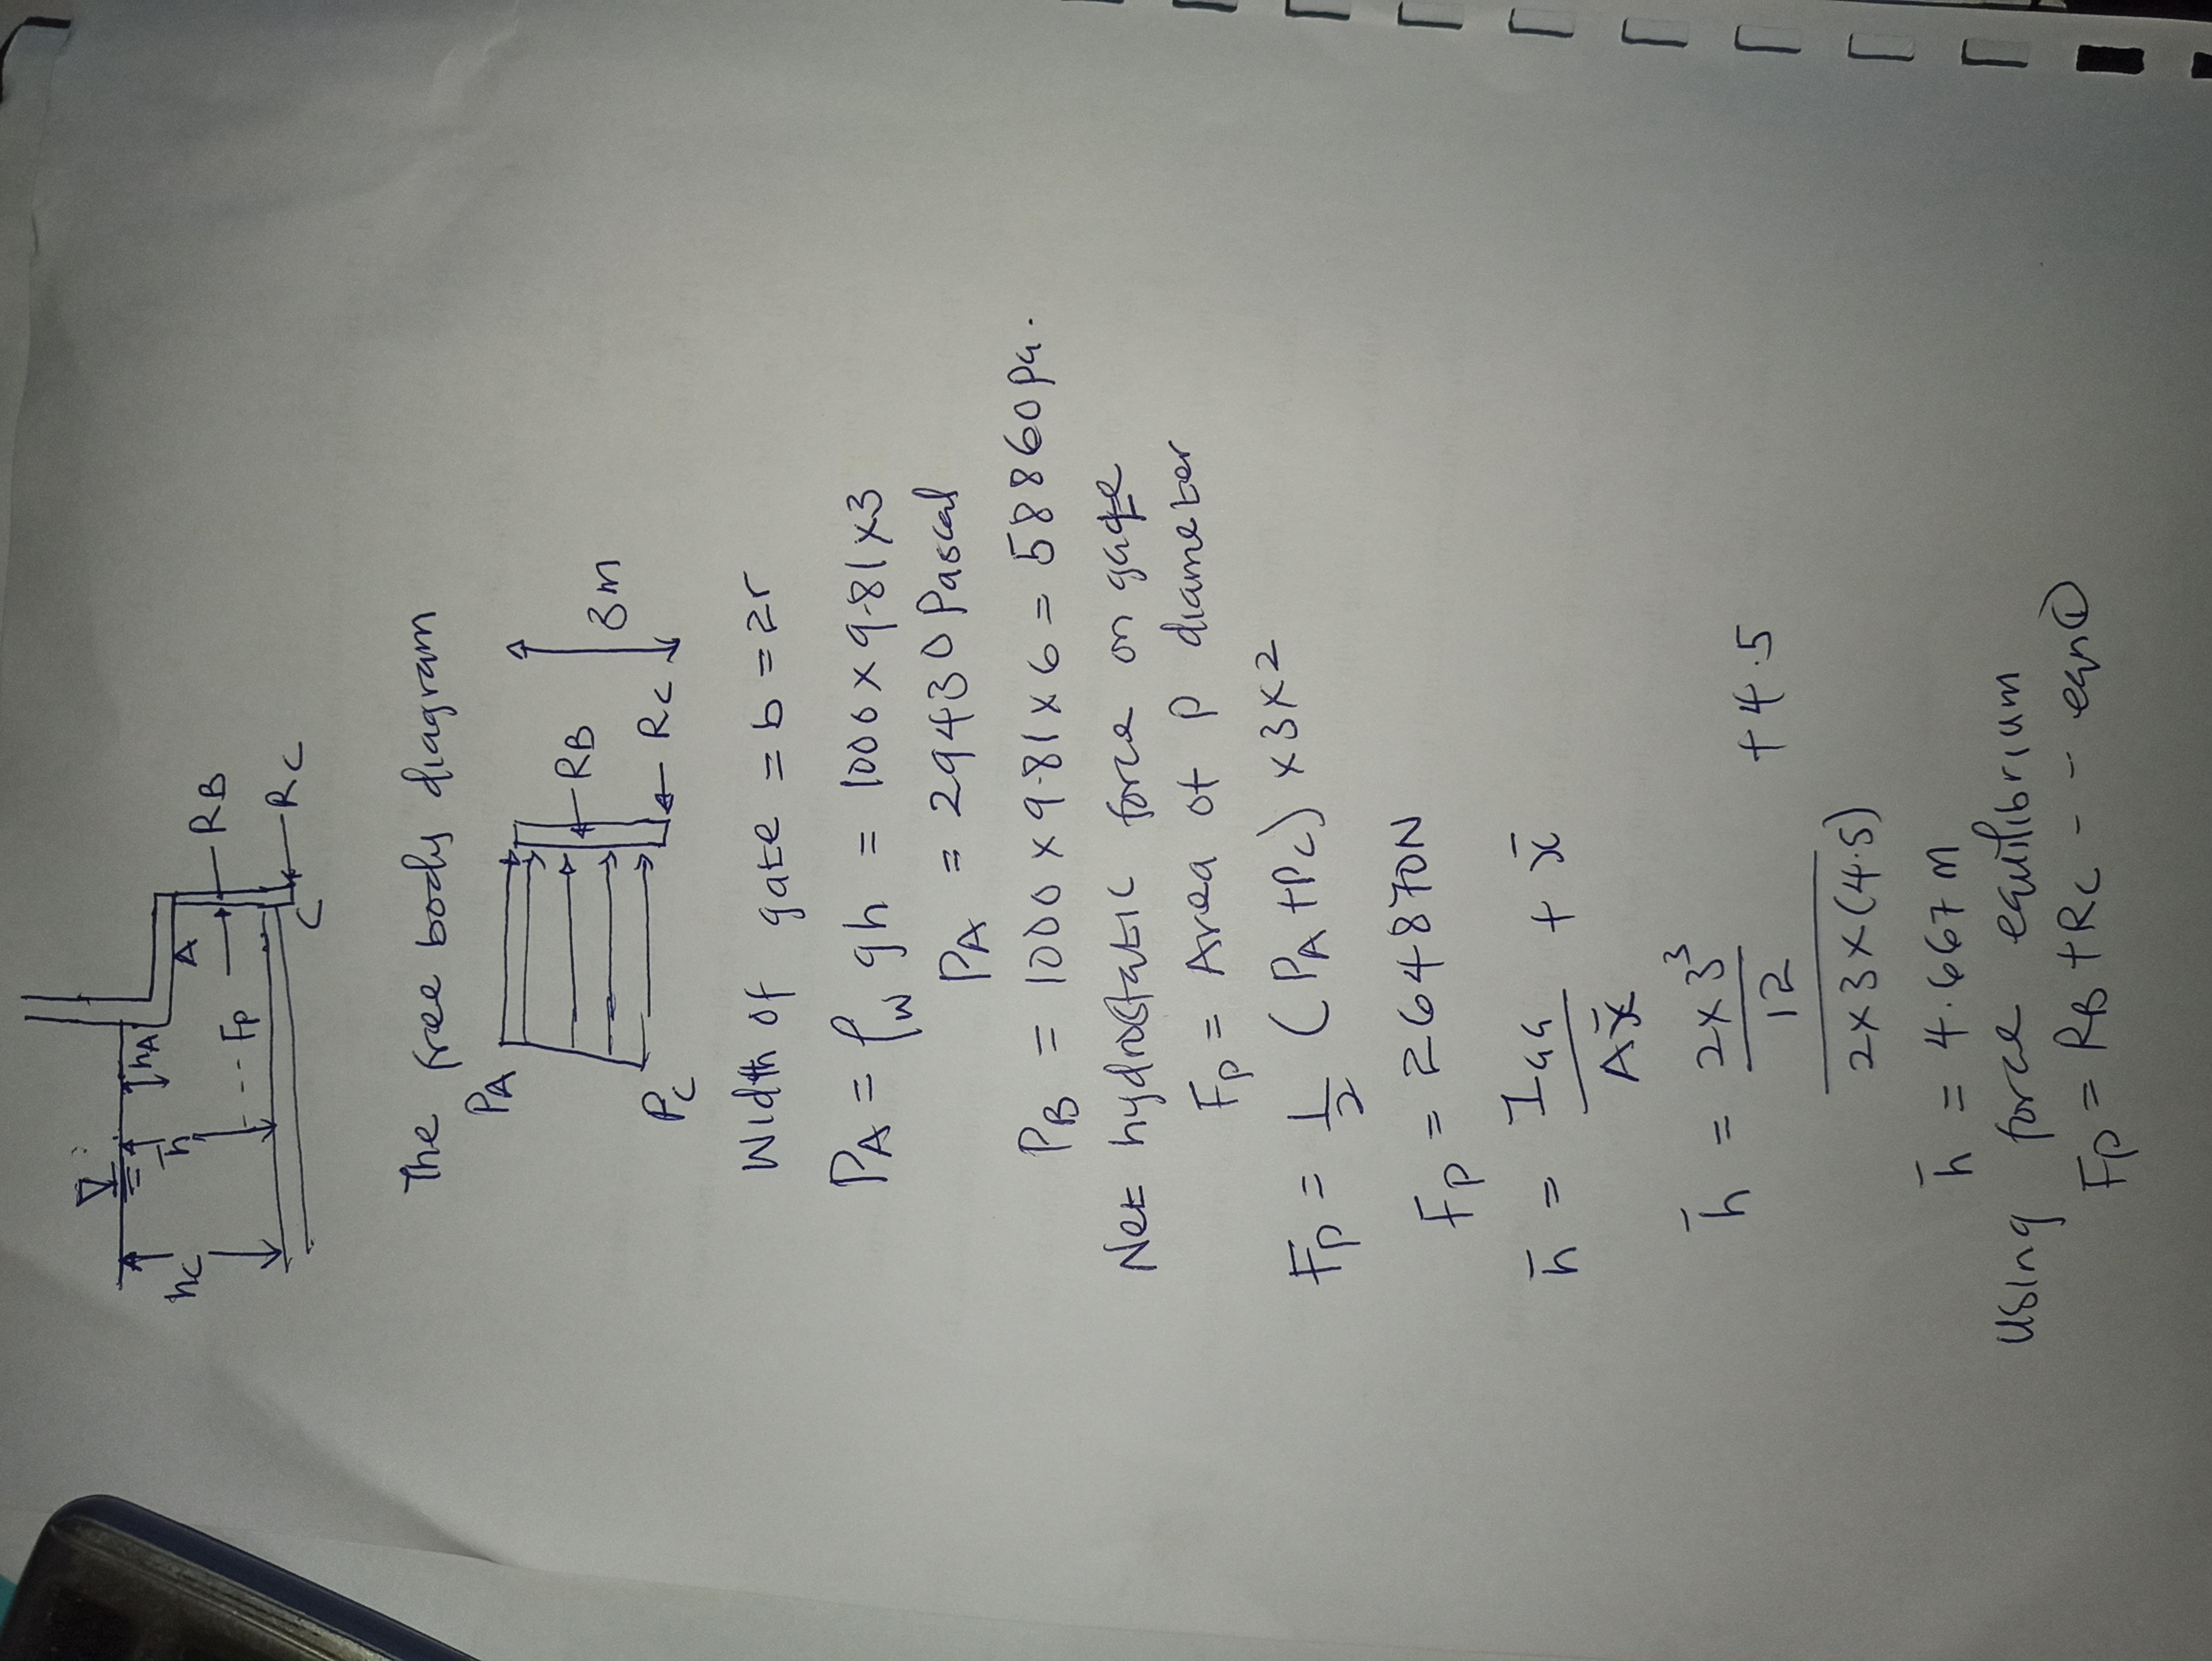 hc
h̄
hA
A
--- Fp
RB
C
Rc
The free body diagram
PA
RB
Rc
3m
Pc
Width of gate = b = 2r
PA = ρw gh = 1000 x 9.81 x3
PA = 29430 Pascal
PB = 1000 x 9.81 x 6 = 58860 pa.
Net hydrostatic force on gate
Fp = Area of p diameter
Fp = 1/2 (PA +Pc) x3x2
Fp = 264870N
h̄ = Iaa / Ax̄ + x̄
h̄ = (2x3³/12) / (2x3x(4.5)) + 4.5
h̄ = 4.667m
Using force equilibrium
Fp = RB +Rc --- eqn①